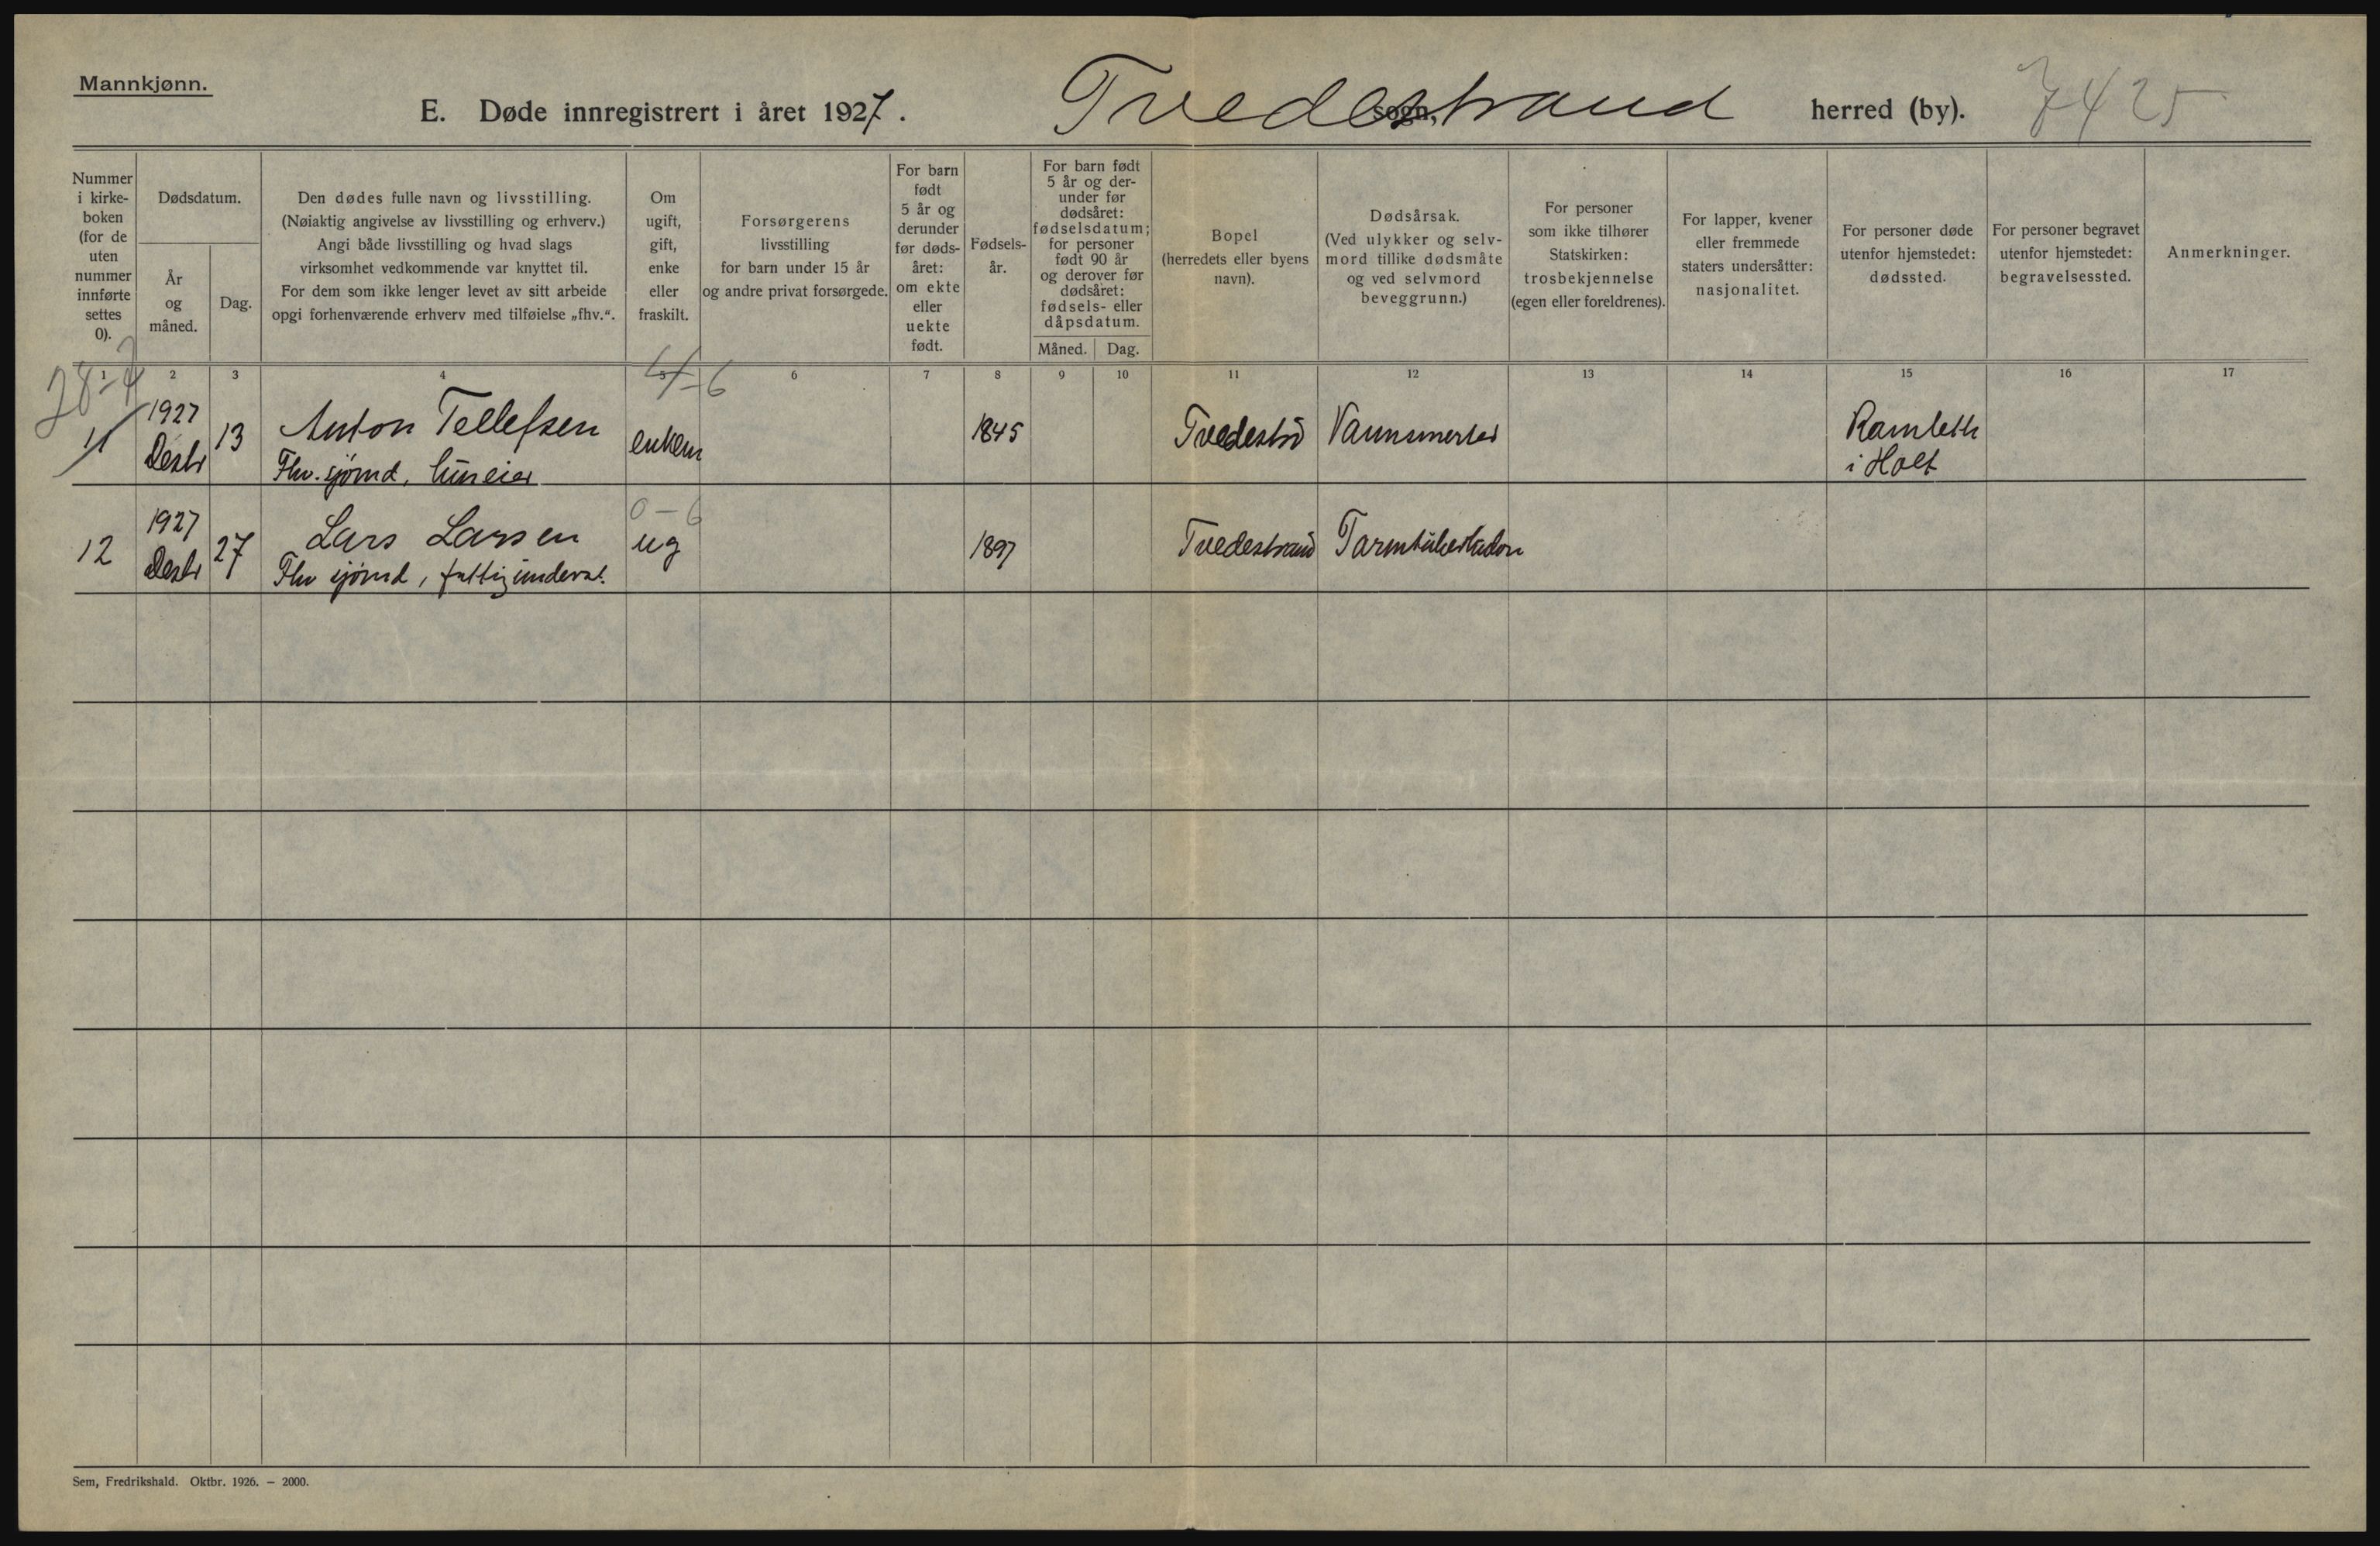 Mannkjønn.
E. Døde innregistrert i året 1927. Tvedestrand sogn, herred (by). 7425
Nummer i kirke- boken (for de uten nummer innførte settes 0).
Dødsdatum.
År og måned.
Dag.
Den dødes fulle navn og livsstilling.
(Nøiaktig angivelse av livsstilling og erhverv.)
Angi både livsstilling og hvad slags
virksomhet vedkommende var knyttet til.
For dem som ikke lenger levet av sitt arbeide
opgi forhenværende erhverv med tilføielse „fhv.“.
Om ugift, gift, enke eller fraskilt.
Forsørgerens
livsstilling
for barn under 15 år
og andre privat forsørgede.
For barn født 5 år og derunder før døds- året: om ekte eller uekte født.
Fødsels- år.
For barn født 5 år og der- under før dødsåret: fødselsdatum; for personer født 90 år og derover før dødsåret: fødsels- eller dåpsdatum.
Måned. Dag.
Bopel
(herredets eller byens
navn).
Dødsårsak.
(Ved ulykker og selv-
mord tillike dødsmåte
og ved selvmord
beveggrunn.)
For personer
som ikke tilhører
Statskirken:
trosbekjennelse
(egen eller foreldrenes).
For lapper, kvener
eller fremmede
staters undersåtter:
nasjonalitet.
For personer døde
utenfor hjemstedet:
dødssted.
For personer begravet
utenfor hjemstedet:
begravelsessted.
Anmerkninger.
1 2 3 4 5 6 7 8 9 10 11 12 13 14 15 16 17
4-6
11 1927 Desbr 13 Anton Tellefsen enkem 1845 Tvedestrd Ramleth
Fhv. sjømd, huseier i Holt
0-6
12 1927 Desbr 27 Lars Larsen ug 1897 Tvedestrand Tarmtuberkulose
Fhv sjømd, fattigunderst.
Sem, Fredrikshald. Oktbr. 1926. — 2000.